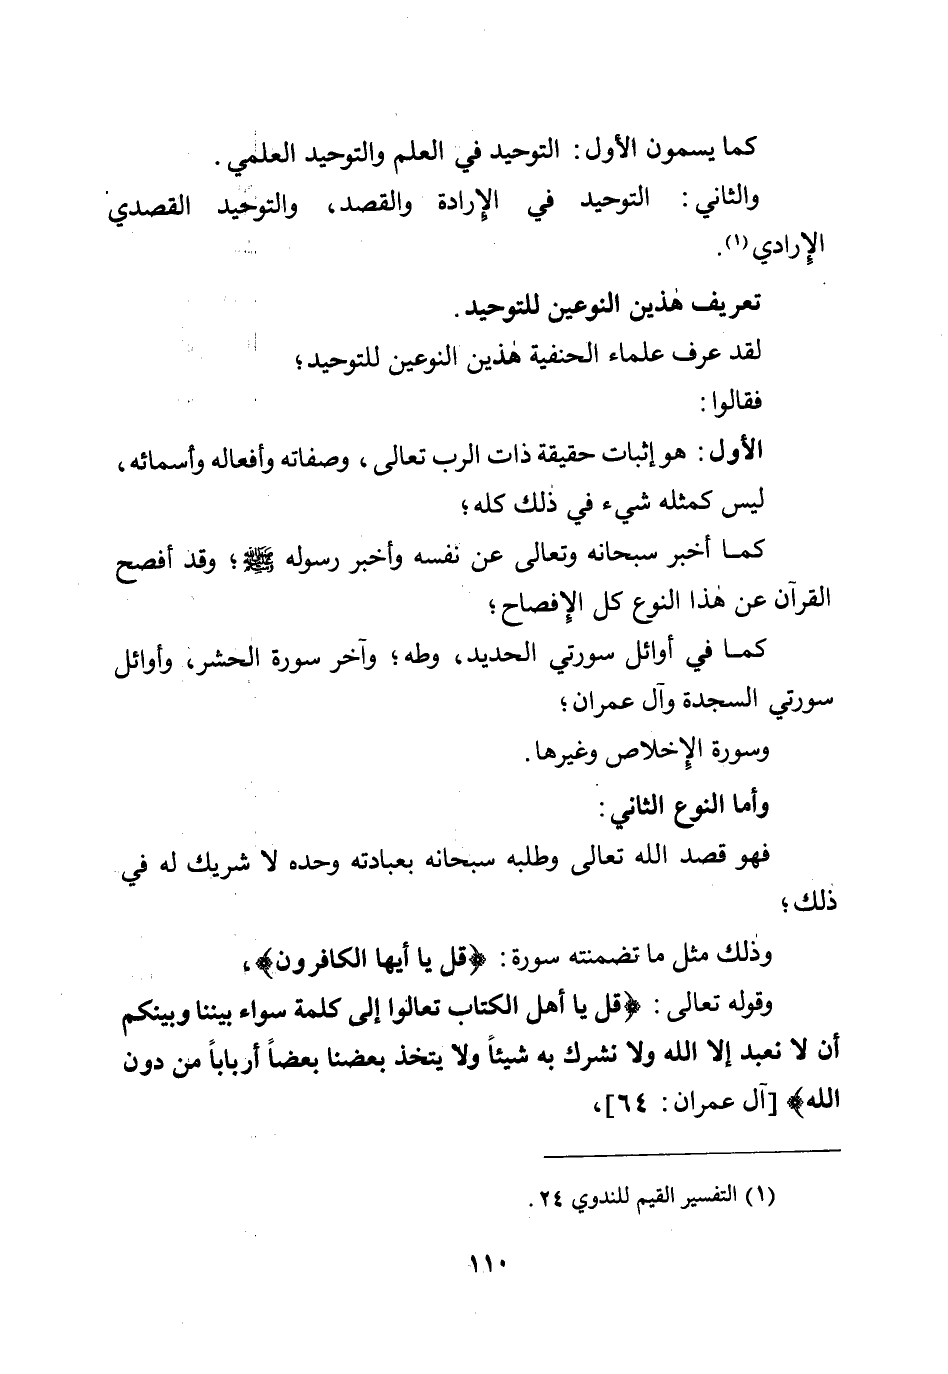 كما يسمون الأول: التوحيد في العلم والتوحيد العلمي.
والثاني: التوحيد في الإرادة والقصد، والتوحيد القصدي
الإرادي(١).
تعريف هٰذين النوعين للتوحيد.
لقد عرف علماء الحنفية هٰذين النوعين للتوحيد؛
فقالوا:
الأول: هو إثبات حقيقة ذات الرب تعالى، وصفاته وأفعاله وأسمائه،
ليس كمثله شيء في ذٰلك كله؛
كمـا أخبر سبحانه وتعالى عن نفسه وأخبر رسوله ﷺ؛ وقد أفصح
القرآن عن هٰذا النوع كل الإفصاح؛
كمـا في أوائل سورتي الحديد، وطه؛ وآخر سورة الحشر، وأوائل
سورتي السجدة وآل عمران؛
وسورة الإخلاص وغيرها.
وأما النوع الثاني:
فهو قصد الله تعالى وطلبه سبحانه بعبادته وحده لا شريك له في
ذٰلك؛
وذٰلك مثل ما تضمنته سورة: ﴿قل يا أيها الكافرون﴾،
وقوله تعالى: ﴿قل يا أهل الكتاب تعالوا إلى كلمة سواء بيننا وبينكم
أن لا نعبد إلا الله ولا نشرك به شيئاً ولا يتخذ بعضنا بعضاً أرباباً من دون
الله﴾ [آل عمران: ٦٤]،
(١) التفسير القيم للندوي ٢٤.
١١٠